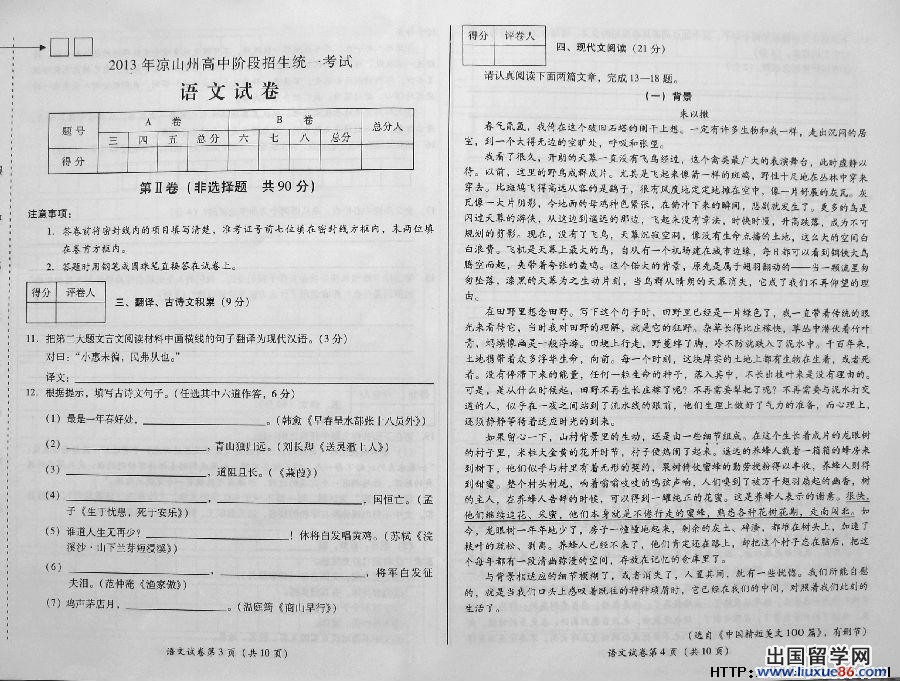 2013年凉山州高中阶段招生统一考试
语文试卷
题号 A 卷 B 卷 总分人
三 四 五 总分 六 七 八 总分
得分
第Ⅱ卷（非选择题 共90分）
注意事项：
1. 答卷前将密封线内的项目填写清楚，准考证号前七位填在密封线方框内，末两位填
在卷首方框内。
2. 答题时用钢笔或圆珠笔直接答在试卷上。
得分 评卷人
三、翻译、古诗文积累（9分）
11. 把第二大题文言文阅读材料中画横线的句子翻译为现代汉语。（3分）
对曰：“小惠未徧，民弗从也。”
译文：
12. 根据提示，填写古诗文句子。（任选其中六道作答，6分）
（1）最是一年春好处，。（韩愈《早春呈水部张十八员外》）
（2），青山独归远。（刘长卿《送灵澈上人》）
（3），道阻且长。（《蒹葭》）
（4），，国恒亡。（孟
子《生于忧患，死于安乐》）
（5）谁道人生无再少？！休将白发唱黄鸡。（苏轼《浣
溪沙·山下兰芽短浸溪》）
（6），，将军白发征
夫泪。（范仲淹《渔家傲》）
（7）鸡声茅店月，。（温庭筠《商山早行》）
语文试卷第3页（共10页）
得分 评卷人
四、现代文阅读（21分）
请认真阅读下面两篇文章，完成13—18题。
（一）背景
朱以撒
春气氤氲，我倚在这个破旧石塔的阑干上想。一定有许多生物和我一样，走出沉闷的居
室，到一个大得无边的空旷处，呼吸和张望。
我看了很久，开朗的天幕一直没有飞鸟经过，这个禽类最广大的表演舞台，此时虚静以
待。以前，这里的野鸟成群成片。尤其是飞起来像箭一样的斑鸠，野性十足地在丛林中穿来
穿去。比斑鸠飞得高远从容的是鹞子，很有风度地定定地摊在空中，像一片舒展的灰瓦。灰
瓦像一大片阴影，令地面的母鸡神色紧张，在俯冲下来的瞬间，悲剧就发生了。更多的鸟是
闪过天幕的游侠，从这边到遥远的那边，飞起来没有章法，时快时慢，升高跌落，成为不可
规划的剪影。现在，没有了飞鸟，天幕沉寂空洞，像没有生命点播的土地，这么大的空间白
白浪费。飞机是天幕上最大的鸟，自从有一个机场建在城市边缘，每日都可以看到钢铁大鸟
腾空而起，夹带着夸张的轰鸣。这个偌大的背景，原先是属于翅羽翻动的——当一颗流星匆
匆坠落，漆黑的天幕为之生动片刻，当鸟群从晴朗的天幕消失，它成了我们不再仰望的理
由。
在田野里想念田野。写下这个句子时，田野里已经是一片绿色了，我一直带着传统的眼
光来看待它，当时我对田野的理解，就是它的狂野。杂草长得比庄稼快，草丛中潜伏着竹叶
青，蚂蟥像幽灵一般浮游。田埂上行走，野蔓绊了脚，冷不防就跌入了泥水中。千百年来，
土地携带着众多浮华生命，向前。每一个时刻，这块厚实的土地上都有生物在生着，或者死
着。没有停滞下来的能量，任何一粒生命的种子，落入其中，不长出枝叶来是没有理由的。
可是，是从什么时候起，田野不再生长庄稼了呢？不再需要犁耙了呢？不再需要与泥水打交
道的人，似乎在一夜之间站到了流水线的跟前，他们生理上做好了气力的准备，而心理上，
还须静静等待着适应时光的到来。
如果留心一下，山村背景里的生动，还是由一些细节组成。在这个生长着成片的龙眼树
的村子里，米粒大金黄的花开时节，村子便热闹了起来。遥远的养蜂人载着一箱箱的蜂房来
到树下，他们似乎与村里有着无形的契约，果树倚仗蜜蜂的勤劳授粉得以丰收，养蜂人则得
到甜蜜。整个村头村尾，响着嗡嗡吱吱的鸣弦声响，人们嗅到了被万千翅羽扇起的幽香，树
的主人，在养蜂人告辞的时候，可以得到一罐纯正的花蜜。这是养蜂人表示的谢意。很快，
他们继续追花、采蜜，他们本身就是不倦行走的蜜蜂，熟悉各种花树花期，走南闯北。如
今，龙眼树一年年地少了，房子一幢幢地起来，剩余的灰土、碎渣，都堆在树头上，加速了
枝叶的疏松、剥离。养蜂人已经不来了，他们肯定还在路上，却把这个村子忘在脑后，把这
个每年都有一段清幽弥漫的空间，存放在记忆的仓库里了。
与背景相适应的细节模糊了，或者消失了，人置其间，就有一些恍惚。我们所能自慰
的，就是当我们口头上感叹着既往的种种琐屑时，它已经在我们的中间，对照着我们此刻的
生活了。
（选自《中国精短美文100篇》，有删节）
语文试卷第4页（共10页）
HTTP:
出国留学网
www.liuxue86.com